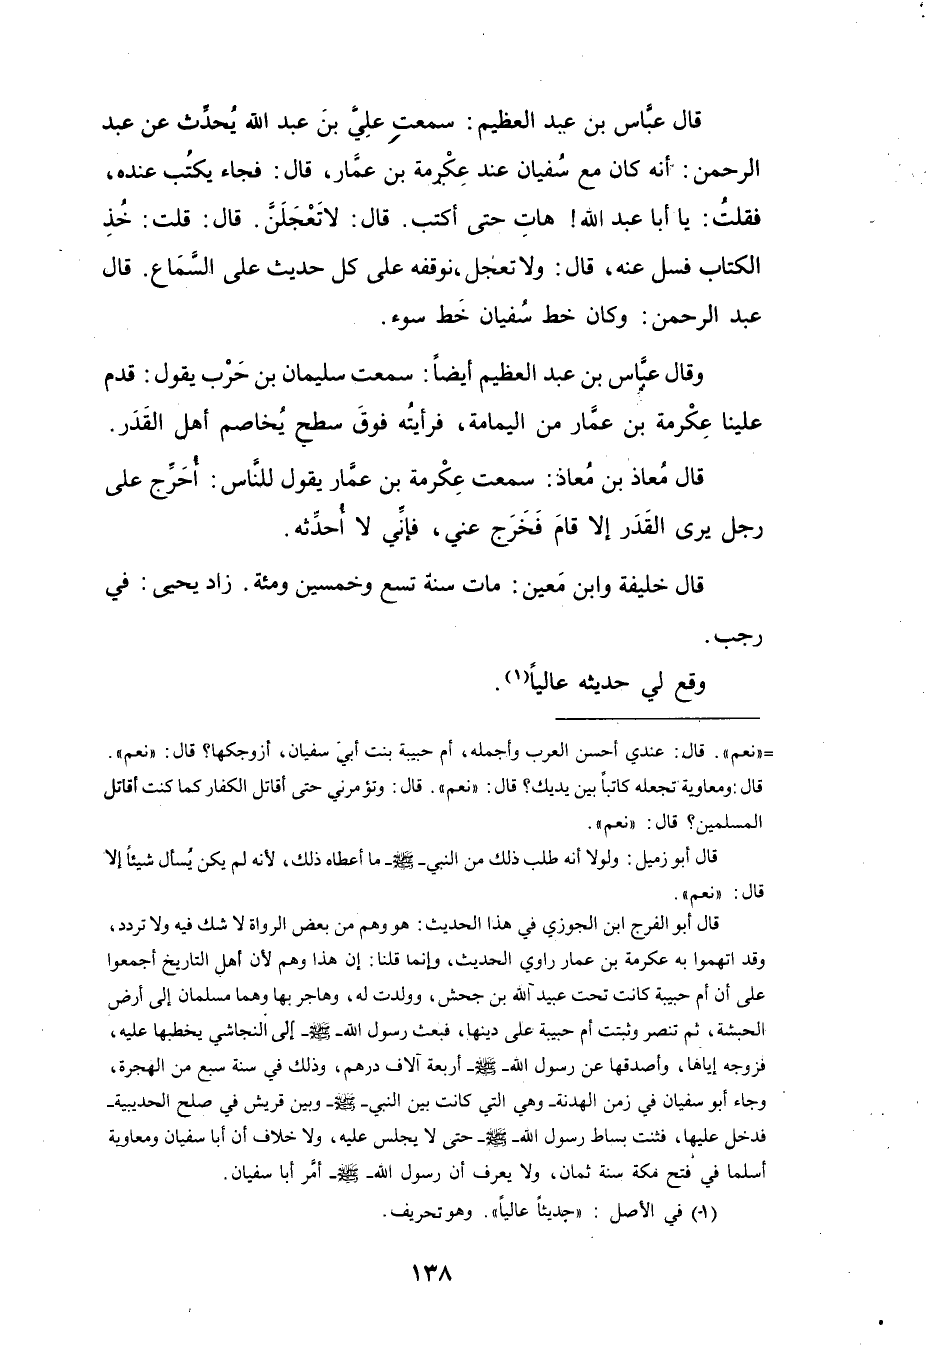 قال عبَّاس بن عبد العظيم: سمعت عليَّ بنَ عبد الله يُحدِّث عن عبد
الرحمن: أنه كان مع سُفيان عند عِكْرِمة بن عمَّار، قال: فجاء يكتُب عنده،
فقلتُ: يا أبا عبد الله! هاتِ حتى أكتب. قال: لاتَعْجَلَنَّ. قال: قلت: خُذِ
الكتاب فسل عنه، قال: ولا تعجَل، نوقفه على كل حديث على السَّمَاع. قال
عبد الرحمن: وكان خط سُفيان خَط سوء.
وقال عبَّاس بن عبد العظيم أيضاً: سمعت سليمان بن حَرْب يقول: قدم
علينا عِكْرمة بن عمَّار من اليمامة، فرأيتُه فوقَ سطحٍ يُخاصم أهل القَدَر.
قال مُعاذ بن مُعاذ: سمعت عِكْرمة بن عمَّار يقول للنَّاس: أُحَرِّج على
رجل يرى القَدَر إلا قامَ فَخَرَج عني، فإنِّي لا أُحدِّثه.
قال خليفة وابن مَعين: مات سنة تسع وخمسين ومئة. زاد يحيى: في
رجب.
وقع لي حديثه عالياً(١).
=«نعم». قال: عندي أحسن العرب وأجمله، أم حبيبة بنت أبي سفيان، أزوجكها؟ قال: «نعم».
قال: ومعاوية تجعله كاتباً بين يديك؟ قال: «نعم». قال: وتؤمرني حتى أقاتل الكفار كما كنت أقاتل
المسلمين؟ قال: «نعم».
قال أبو زميل: ولولا أنه طلب ذلك من النبي ـ ﷺ ـ ما أعطاه ذلك، لأنه لم يكن يُسأل شيئاً إلا
قال: «نعم».
قال أبو الفرج ابن الجوزي في هذا الحديث: هو وهم من بعض الرواة لا شك فيه ولا تردد،
وقد اتهموا به عكرمة بن عمار راوي الحديث، وإنما قلنا: إن هذا وهم لأن أهل التاريخ أجمعوا
على أن أم حبيبة كانت تحت عبيد الله بن جحش، وولدت له، وهاجر بها وهما مسلمان إلى أرض
الحبشة، ثم تنصر وثبتت أم حبيبة على دينها، فبعث رسول الله ـ ﷺ ـ إلى النجاشي يخطبها عليه،
فزوجه إياها، وأصدقها عن رسول الله ـ ﷺ ـ أربعة آلاف درهم، وذلك في سنة سبع من الهجرة،
وجاء أبو سفيان في زمن الهدنة ـ وهي التي كانت بين النبي ـ ﷺ ـ وبين قريش في صلح الحديبية ـ
فدخل عليها، فثنت بساط رسول الله ـ ﷺ ـ حتى لا يجلس عليه، ولا خلاف أن أبا سفيان ومعاوية
أسلما في فتح مكة سنة ثمان، ولا يعرف أن رسول الله ـ ﷺ ـ أمَّر أبا سفيان.
(١) في الأصل: «حديثاً عالياً». وهو تحريف.
١٣٨